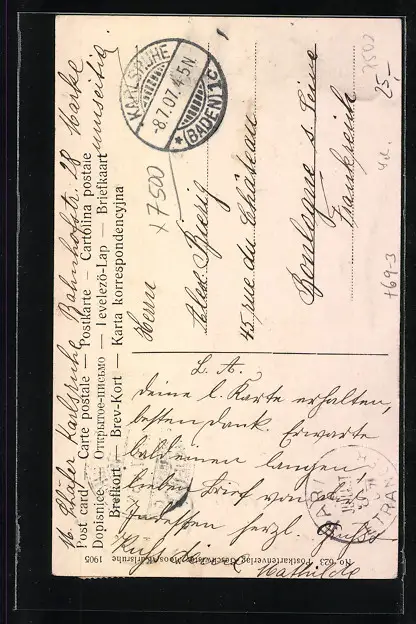 Bahnhofstr. 28 Marke umseitig.
Schäfer Karlsruhe
Post card — Carte postale — Postkarte — Cartolina postale
Dopisnice — Открытое-письмо — Levelező-Lap — Briefkaart
Brefkort — Brev-Kort — Karta korrespondencyjna
KARLSRUHE
-8.7.07. 4-5N
* (BADEN) 1 C
Herrn
x 7500
Alex.
45, rue du Château
Boulogne s. Seine
Frankreich
7500
25,-
+69-3
L. A.
Deine l. Karte erhalten,
besten Dank. Erwarte
bald einen langen,
lieben Brief von dir.
Indessen herzl. Gruß
Kuss
Mathilde
PARIS
ETRANGER
No. 623 Postkartenverlag Geschwister Moos, Karlsruhe 1905